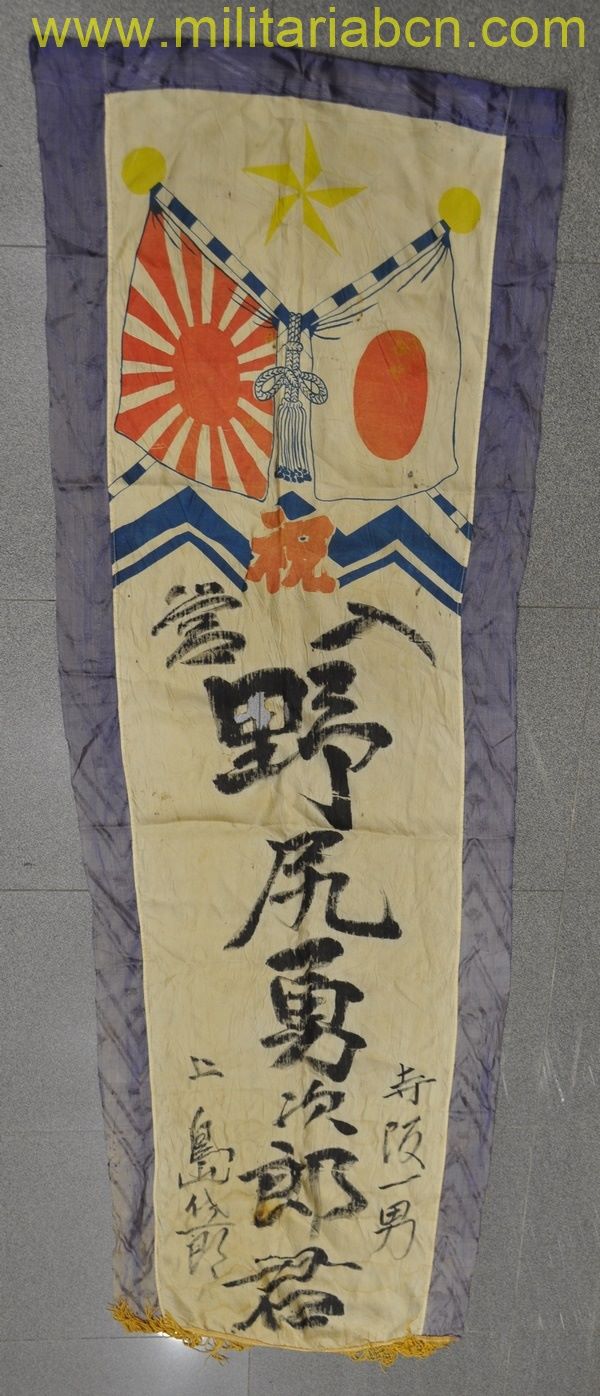 www.militariabcn.com
祝
入営
野尻勇次郎君
寺阪一男
上島